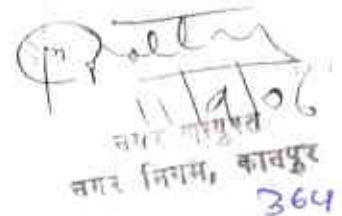 11/9/06
नगर आयुक्त
नगर निगम, कानपुर
364